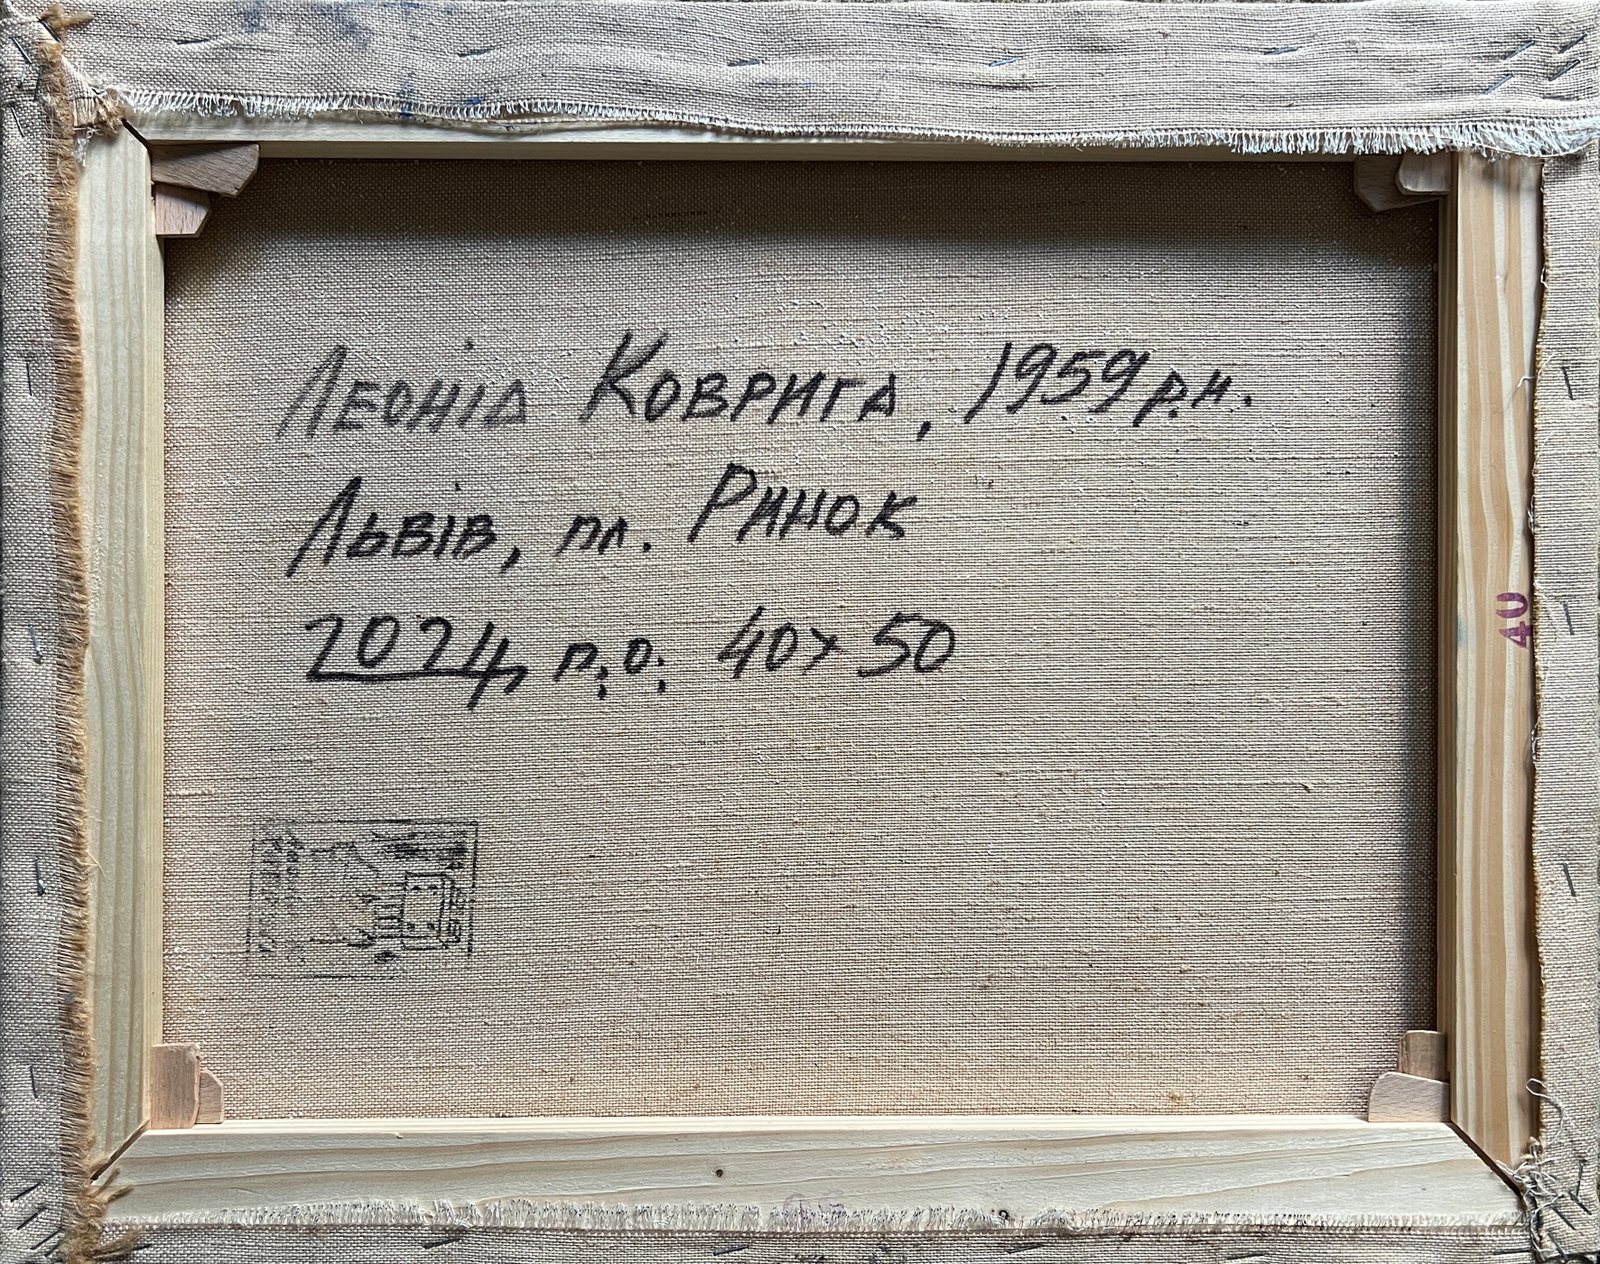 Леонід Коврига, 1959 р.н.
Львів, пл. Ринок
2024, п,о, 40х50
40